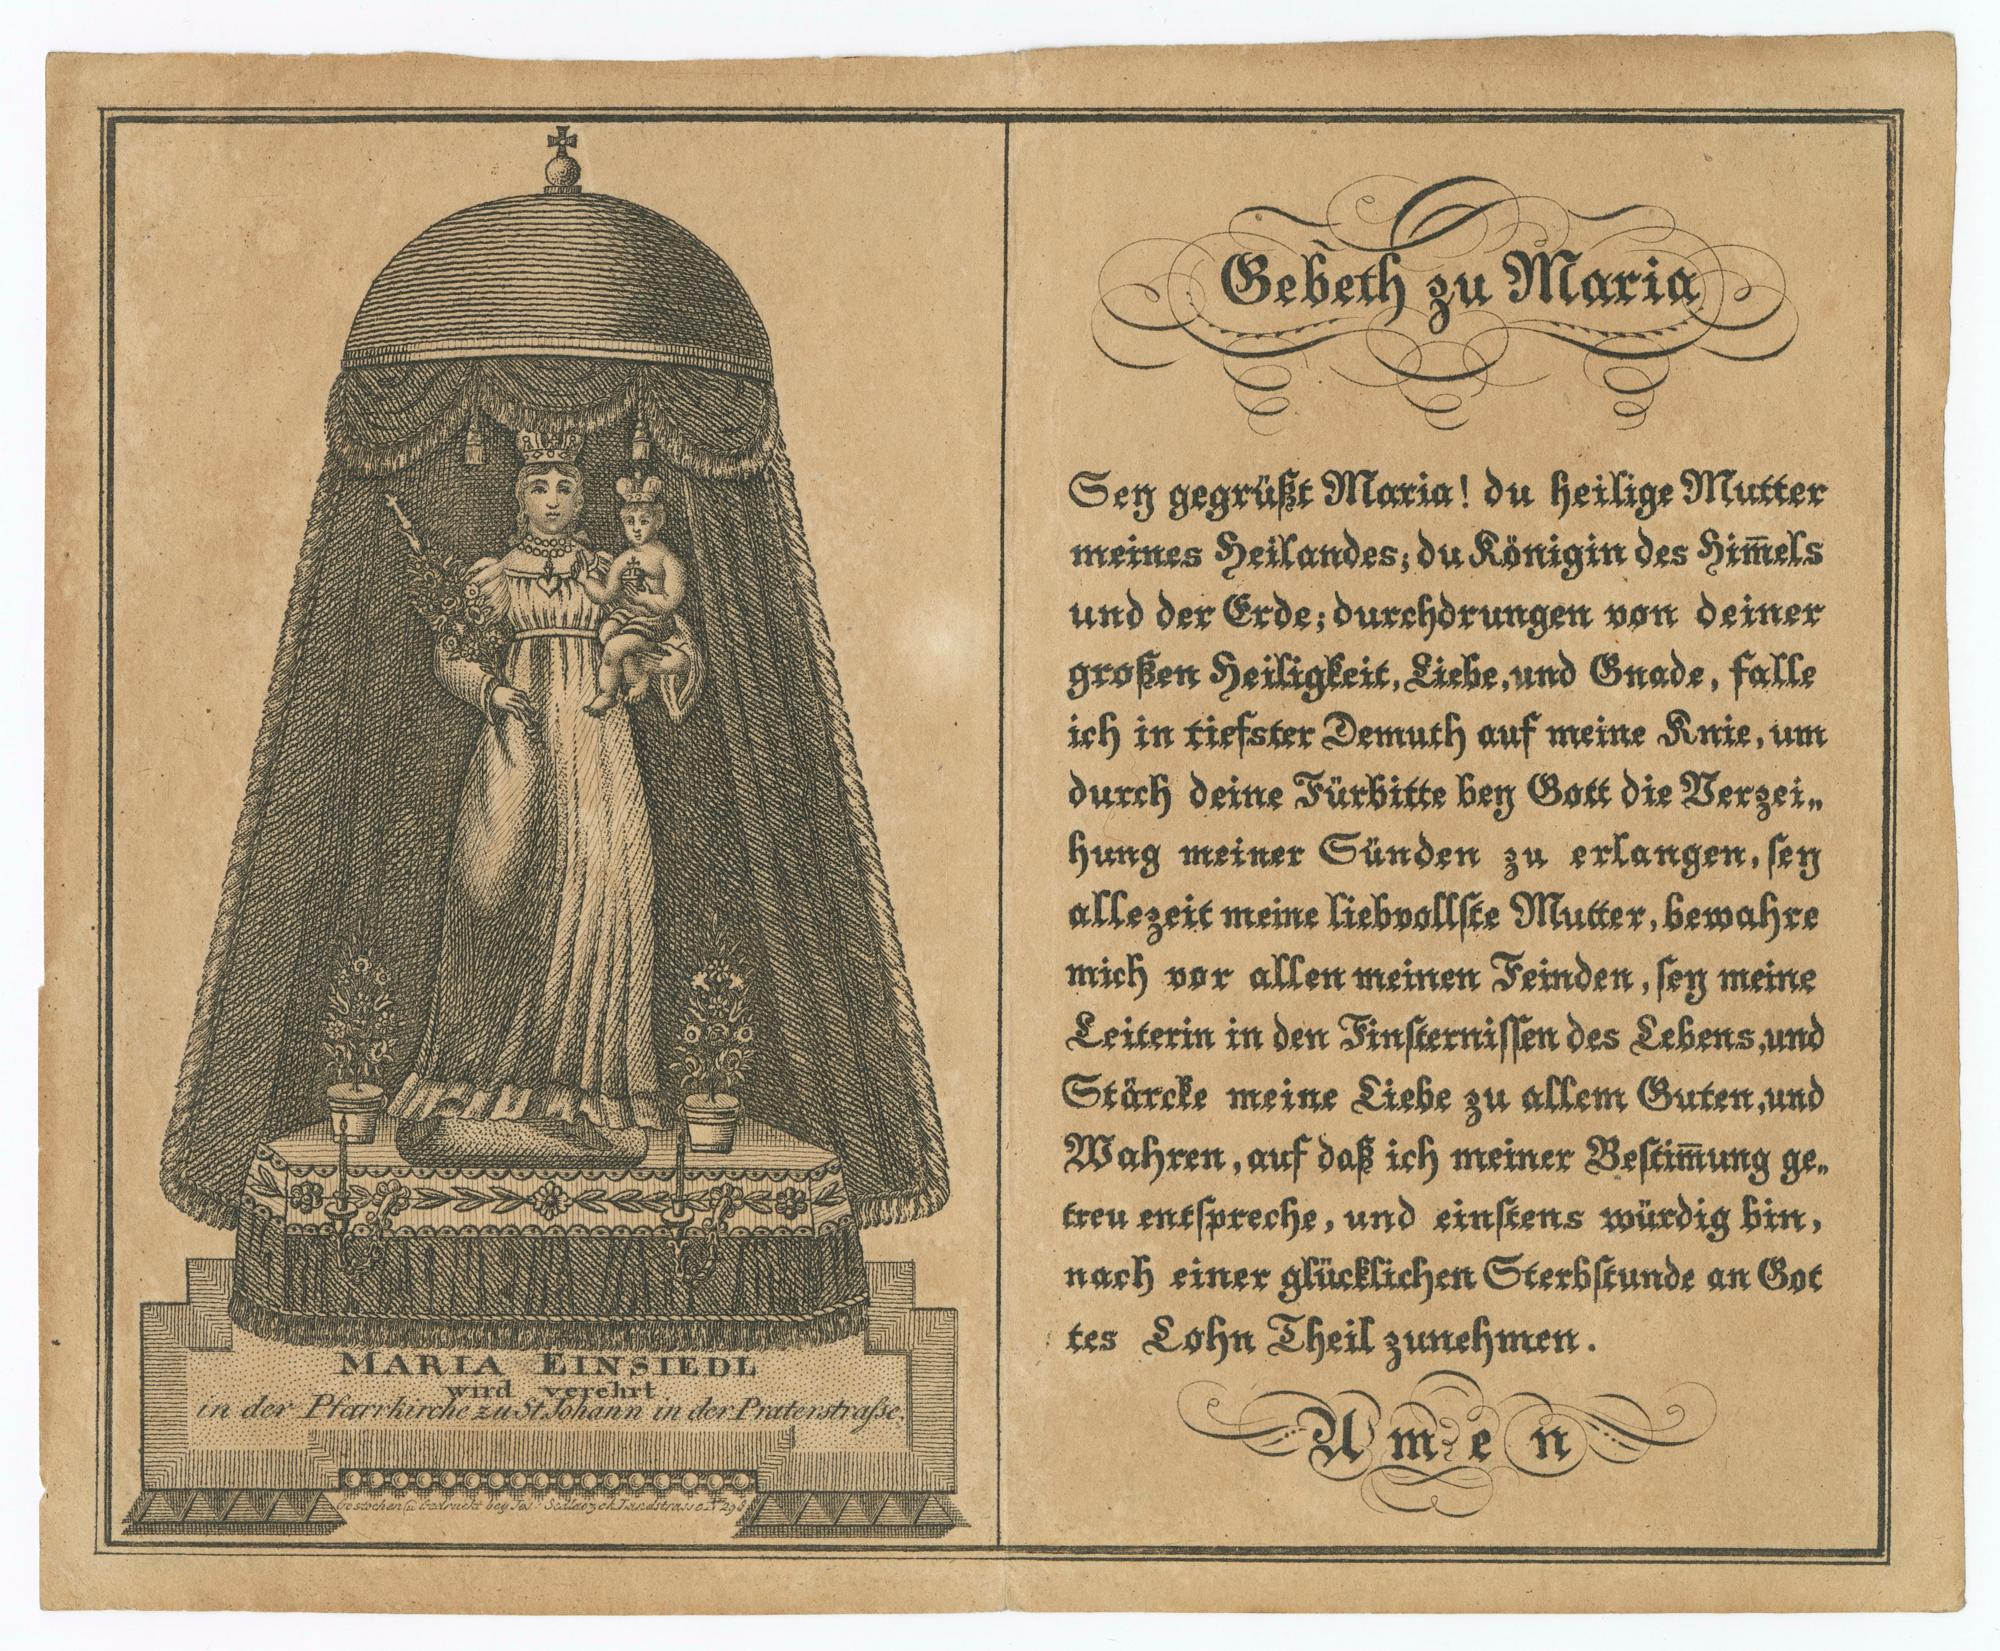 MARIA EINSIEDL
wird verehrt
in der Pfarrkirche zu St Johann in der Praterstraſse.
Gestochen u. Gedruckt bey Jos. Sedlaczek Landstrasse N 298
Gebeth zu Maria
Sey gegrüßt Maria! du heilige Mutter
meines Heilandes; du Königin des Him̅els
und der Erde; durchdrungen von deiner
großen Heiligkeit, Liebe, und Gnade, falle
ich in tiefster Demuth auf meine Knie, um
durch deine Fürbitte bey Gott die Verzei„
hung meiner Sünden zu erlangen, ſey
allezeit meine liebvollſte Mutter, bewahre
mich vor allen meinen Feinden, ſey meine
Leiterin in den Finſterniſſen des Lebens, und
Stärcke meine Liebe zu allem Guten, und
Wahren, auf daß ich meiner Beſtim̅ung ge„
treu entſpreche, und einſtens würdig bin,
nach einer glücklichen Sterbſtunde an Got
tes Lohn Theil zunehmen.
Amen